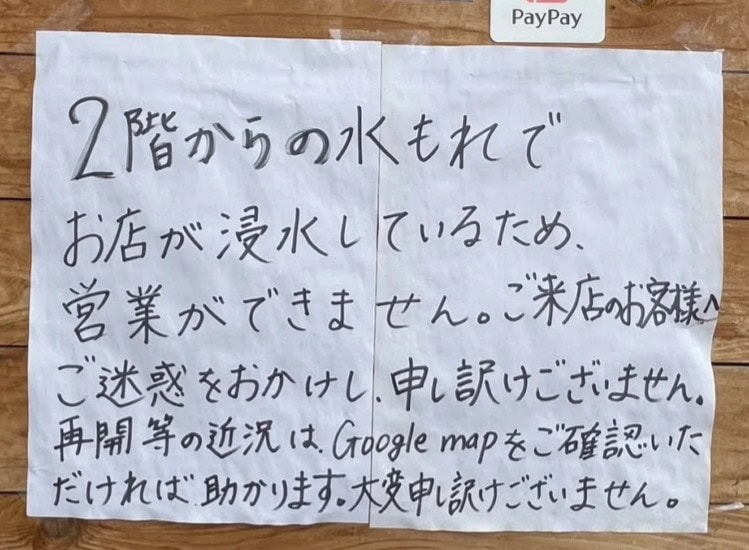 PayPay
2階からの水もれで
お店が浸水しているため、
営業ができません。ご来店のお客様へ
ご迷惑をおかけし、申し訳けございません。
再開等の近況は、Google mapをご確認いた
だければ、助かります。大変申し訳けございません。